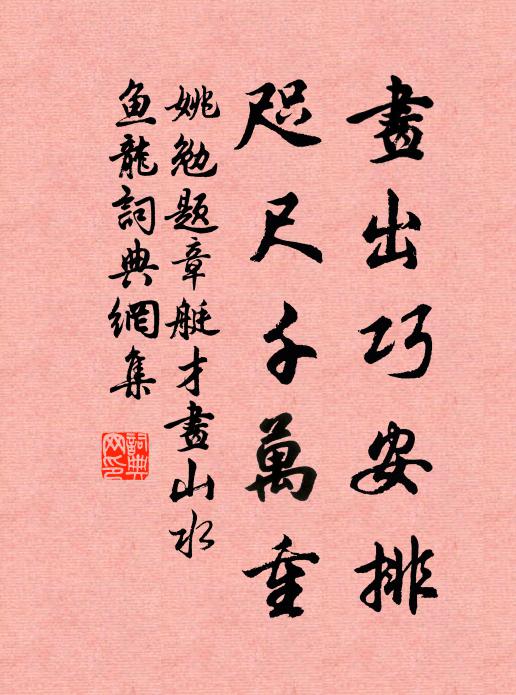 畫出巧安排
咫尺千萬重
姚勉题章艇才畫山水
鱼龍詞典網集
詞典网印